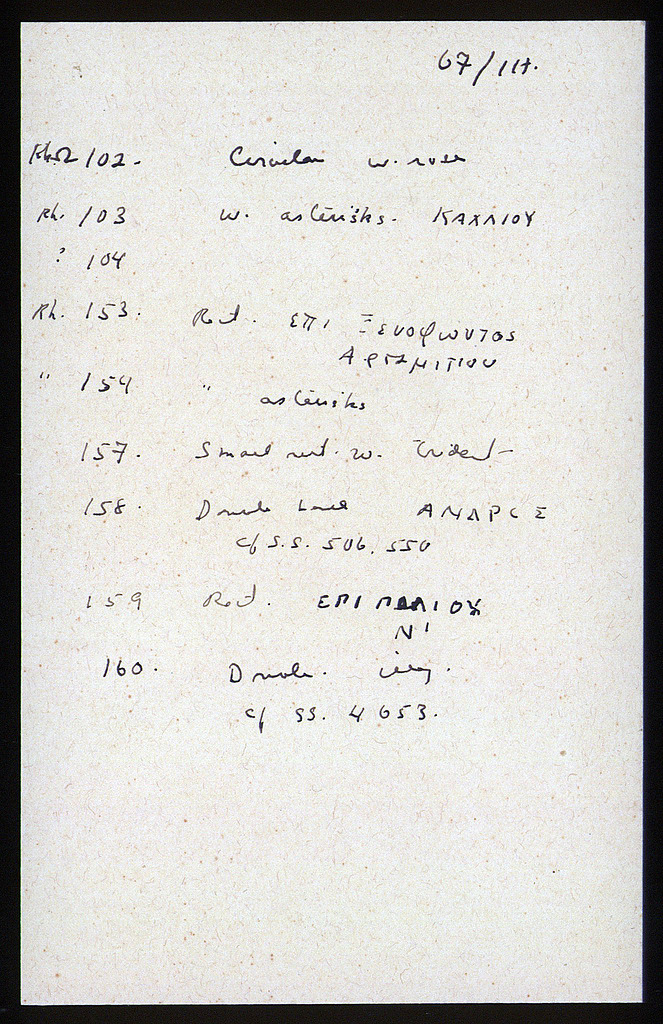 67/III.
Rh. 102. Circular w. rose
Rh. 103 w. asterisks. ΚΑΧΛΙΟΥ
? 104
Rh. 153. Rect. ΕΠΙ Ξενοφωντος
Αρταμιτιου
" 154 " asterisks
157. Small rect. w. Trident
158. Double ΑΝΔΡCΣ
cf S.S. 506, 550
159 Rect. ΕΠΙ
N'
160. Double. illeg.
cf SS. 4653.